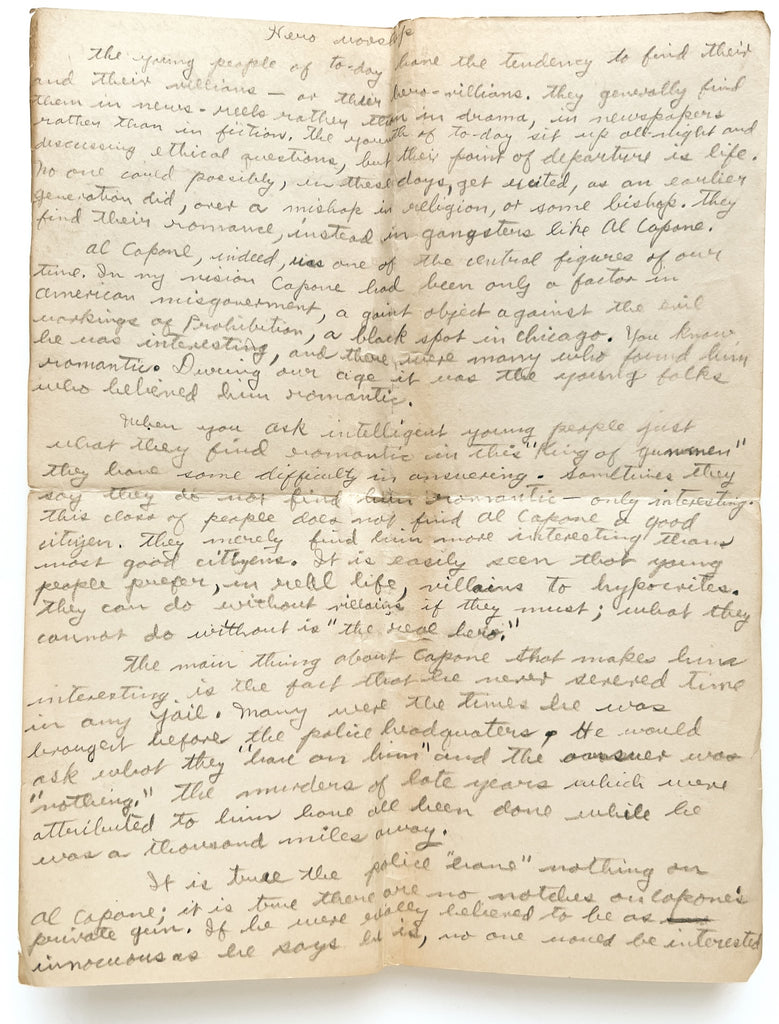 Hero worship
The young people of to-day have the tendency to find their
and their villians - or their hero-villians. They generally find
them in news-reels rather than in drama, in newspapers
rather than in fiction. The youth of to-day sit up all-night and
discussing ethical questions, but their point of departure is life.
No one could possibly, in these days, get exited, as an earlier
generation did, over a mishap in religion, or some bishop. They
find their romance, instead in gangsters like Al Capone.
Al Capone, indeed, was one of the central figures of our
time. In my vision Capone had been only a factor in
American misgoverment, a object against the evil
workings of Prohibition, a black spot in Chicago. You know
he was interesting, and there were many who found him
romantic. During our age it was the young folks
who believed him romantic.
When you ask intelligent young people just
what they find romantic in this "King of gunmen"
they have some difficulty in answering. Sometimes they
say they do not find him romantic - only interesting.
This class of people does not find Al Capone a good
citizen. They merely find him more interesting than
most good citizens. It is easily seen that young
people prefer, in real life, villains to hypocrites.
They can do without villains if they must; what they
cannot do without is "the real hero."
The main thing about Capone that makes him
interesting is the fact that he never severed time
in any jail. Many were the times he was
brought before the police headquaters. He would
ask what they "have on him" and the answer was
"nothing." The murders of late years which were
attributed to him have all been done while he
was a thousand miles away.
It is true the police "have" nothing on
Al Capone; it is true there are no notches on Capone's
private gun. If he were really believed to be as
innocuous as he says he is, no one would be interested